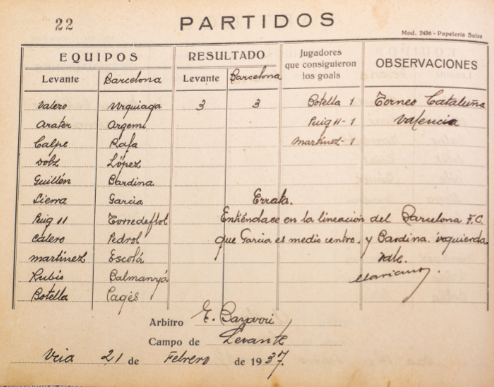 22 PARTIDOS
Mod. 2436 - Papelería Suiza
EQUIPOS RESULTADO Jugadores que consiguieron los goals OBSERVACIONES
Levante Barcelona Levante Barcelona
Valero Urquiaga 3 3 Botella - 1 Torneo Cataluña
Arater Argemí Puig II - 1 Valencia
Calpe Rafa Martínez - 1
Dolz López
Guillén Bardina
Sierra García Errata.
Puig II Torredeflot Entiéndase en la lineación del Barcelona F.C.
Calero Pedrol que García es medio centro. y Bardina izquierda
Martínez Escolá Vale.
Rubio Balmanyá
Botella Pagès
Arbitro E.
Campo de Levante
Vcia 21 de Febrero de 1937.